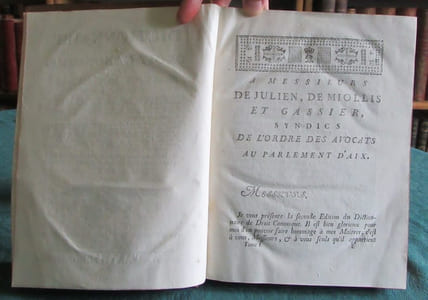 A MESSIEURS
DE JULIEN, DE MIOLLIS
ET GASSIER,
SYNDICS
DE L'ORDRE DES AVOCATS
AU PARLEMENT D'AIX.
MESSIEURS,
Je vous présente la seconde Edition du Diction-
naire de Droit Commun. Il est bien glorieux pour
moi d'en pouvoir faire hommage à mes Maîtres; c'est
à vous, Messieurs, & à vous seuls qu'il appartient
Tome I.